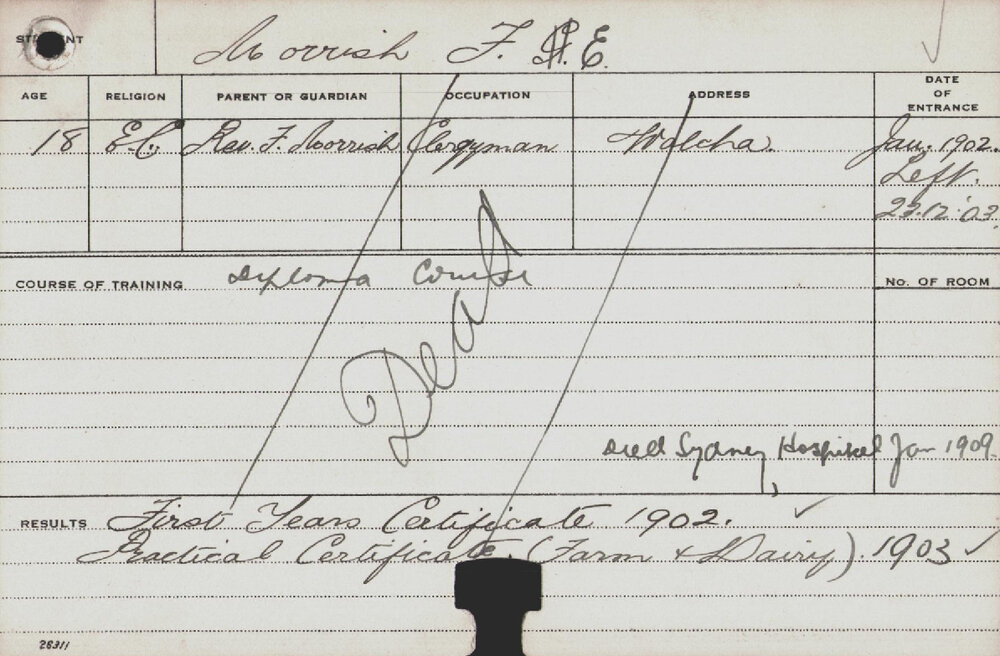 STUDENT Morrish F. H. E.
AGE RELIGION PARENT OR GUARDIAN OCCUPATION ADDRESS DATE OF ENTRANCE
18 E.C. Rev. F. Morrish Clergyman Walcha. Jan. 1902.
Left.
23.12.03
COURSE OF TRAINING Diploma Course No. OF ROOM
Dead
Died Sydney Hospital Jan 1909.
RESULTS First Years Certificate 1902. ✓
Practical Certificate. (Farm & Dairy). 1903 ✓
26311